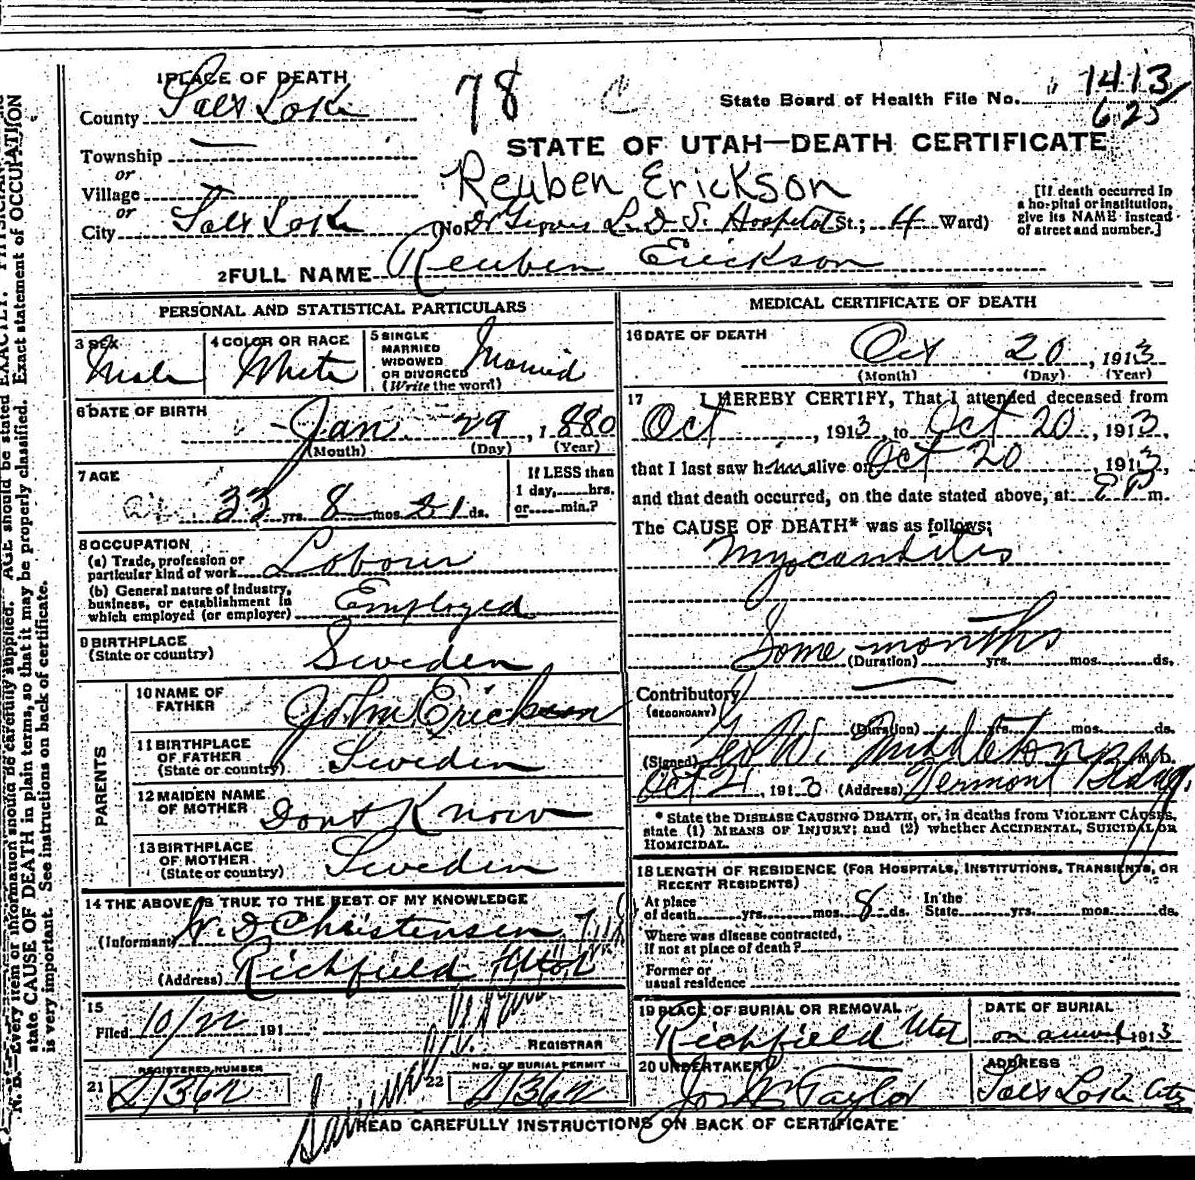 1 PLACE OF DEATH
County Salt Lake
78 C
State Board of Health File No. 1413
625
STATE OF UTAH—DEATH CERTIFICATE
Township
or
Village
or
City Salt Lake
Reuben Erickson
(No. L.D.S. Hospital St.; 4 Ward)
[If death occurred in
a hospital or institution,
give its NAME instead
of street and number.]
2 FULL NAME Reuben Erickson
PERSONAL AND STATISTICAL PARTICULARS
3 SEX Male
4 COLOR OR RACE White
5 SINGLE
MARRIED
WIDOWED
OR DIVORCED
(Write the word) Married
6 DATE OF BIRTH
Jan. 29, 1880
(Month) (Day) (Year)
7 AGE
33 yrs. 8 mos. 21 ds.
If LESS than
1 day,......hrs.
or......min.?
8 OCCUPATION
(a) Trade, profession or
particular kind of work Labour
(b) General nature of industry,
business, or establishment in
which employed (or employer) Employed
9 BIRTHPLACE
(State or country) Sweden
PARENTS
10 NAME OF
FATHER John Erickson
11 BIRTHPLACE
OF FATHER
(State or country) Sweden
12 MAIDEN NAME
OF MOTHER Dont Know
13 BIRTHPLACE
OF MOTHER
(State or country) Sweden
14 THE ABOVE IS TRUE TO THE BEST OF MY KNOWLEDGE
(Informant) W. D. Christensen
(Address) Richfield Utah
15
Filed 10/22 191
REGISTRAR
21 REGISTERED NUMBER
D1362
22 NO. OF BURIAL PERMIT
D1362
MEDICAL CERTIFICATE OF DEATH
16 DATE OF DEATH
Oct 20, 1913
(Month) (Day) (Year)
17 I HEREBY CERTIFY, That I attended deceased from
Oct, 1913 to Oct 20, 1913,
that I last saw him alive on Oct 20, 1913,
and that death occurred, on the date stated above, at P m.
The CAUSE OF DEATH* was as follows:
Myocarditis
Some months
(Duration) yrs. mos. ds.
Contributory
(SECONDARY)
(Duration) yrs. mos. ds.
(Signed) Geo W. Middleton M.D.
Oct 21, 1913 (Address) Vermont Bldg.
* State the DISEASE CAUSING DEATH, or, in deaths from VIOLENT CAUSES,
state (1) MEANS OF INJURY; and (2) whether ACCIDENTAL, SUICIDAL, OR
HOMICIDAL.
18 LENGTH OF RESIDENCE (FOR HOSPITALS, INSTITUTIONS, TRANSIENTS, OR
RECENT RESIDENTS)
At place
of death yrs. mos. 8 ds. In the
State yrs. mos. ds.
Where was disease contracted,
if not at place of death?
Former or
usual residence
19 PLACE OF BURIAL OR REMOVAL
Richfield Utah
DATE OF BURIAL
on arrival 1913
20 UNDERTAKER
Jos. Taylor
ADDRESS
Salt Lake City
READ CAREFULLY INSTRUCTIONS ON BACK OF CERTIFICATE
N. B.—Every item of information should be carefully supplied. AGE should be stated EXACTLY. PHYSICIANS
state CAUSE OF DEATH in plain terms, so that it may be properly classified. Exact statement of OCCUPATION
is very important. See instructions on back of certificate.